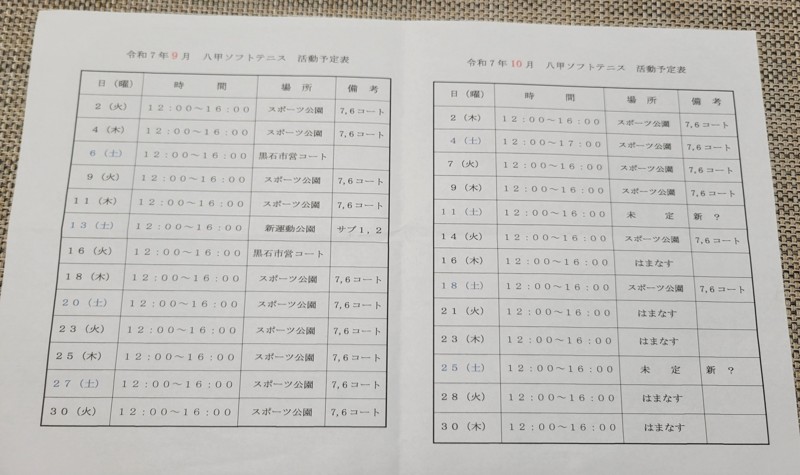 令和７年９月　八甲ソフトテニス　活動予定表
日（曜） 時　間 場　所 備　考
２（火） １２：００～１６：００ スポーツ公園 7,6コート
４（木） １２：００～１６：００ スポーツ公園 7,6コート
６（土） １２：００～１６：００ 黒石市営コート
９（火） １２：００～１６：００ スポーツ公園 7,6コート
１１（木） １２：００～１６：００ スポーツ公園 7,6コート
１３（土） １２：００～１６：００ 新運動公園 サブ1,2
１６（火） １２：００～１６：００ 黒石市営コート
１８（木） １２：００～１６：００ スポーツ公園 7,6コート
２０（土） １２：００～１６：００ スポーツ公園 7,6コート
２３（火） １２：００～１６：００ スポーツ公園 7,6コート
２５（木） １２：００～１６：００ スポーツ公園 7,6コート
２７（土） １２：００～１６：００ スポーツ公園 7,6コート
３０（火） １２：００～１６：００ スポーツ公園 7,6コート
令和７年１０月　八甲ソフトテニス　活動予定表
日（曜） 時　間 場　所 備　考
２（木） １２：００～１６：００ スポーツ公園 7,6コート
４（土） １２：００～１７：００ スポーツ公園 7,6コート
７（火） １２：００～１６：００ スポーツ公園 7,6コート
９（木） １２：００～１６：００ スポーツ公園 7,6コート
１１（土） １２：００～１６：００ 未　定 新　？
１４（火） １２：００～１６：００ スポーツ公園 7,6コート
１６（木） １２：００～１６：００ はまなす
１８（土） １２：００～１６：００ スポーツ公園 7,6コート
２１（火） １２：００～１６：００ はまなす
２３（木） １２：００～１６：００ はまなす
２５（土） １２：００～１６：００ 未　定 新　？
２８（火） １２：００～１６：００ はまなす
３０（木） １２：００～１６：００ はまなす